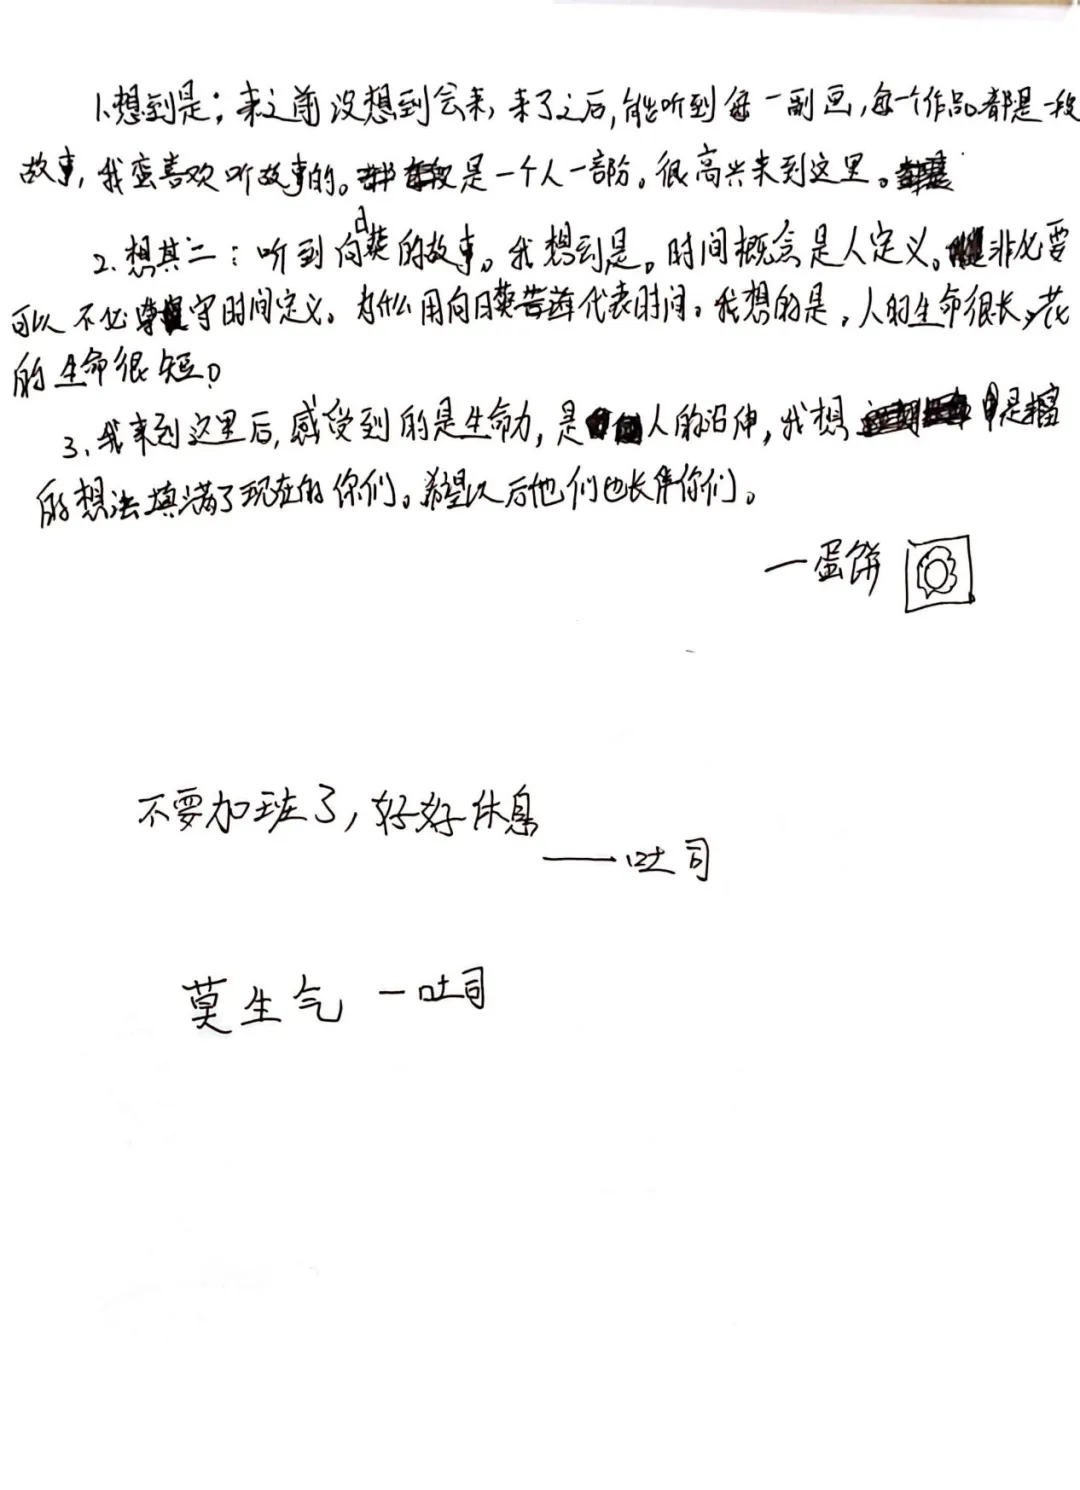 1.想到是；来之前没想到会来，来了之后，能听到每一副画，每一个作品都是一段
故事，我蛮喜欢听故事的。是一个人一部份。很高兴来到这里。
2.想其二：听到向日葵的故事。我想到是。时间概念是人定义。非必要
可以不必守时间定义。为什么用向日葵代表时间。我想的是，人的生命很长，花
的生命很短。
3、我来到这里后，感受到的是生命力，是人的沿伸，我想是
的想法填满了现在的你们。希望以后他们也长伴你们。
一蛋饼
不要加班了，好好休息
——吐司
莫生气 一吐司